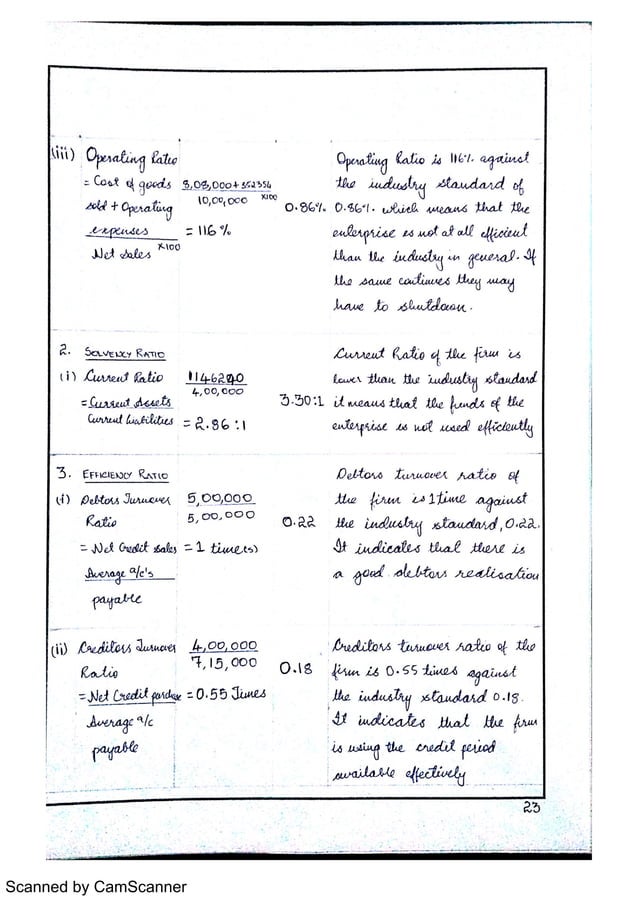 (iii) Operating Ratio
= Cost of goods
sold + Operating
expenses
Net sales ×100
8,08,000 + 352356
10,00,000 ×100
= 116%
0.86%
Operating Ratio is 116% against
the industry standard of
0.86%. which means that the
enterprise is not at all efficient
than the industry in general. If
the same continues they may
have to shutdown.
2. SOLVENCY RATIO
(i) Current Ratio
= Current Assets
Current Liabilities
1146240
4,00,000
= 2.86 : 1
3.30:1
Current Ratio of the firm is
lower than the industry standard
it means that the funds of the
enterprise is not used efficiently
3. EFFICIENCY RATIO
(i) Debtors Turnover
Ratio
= Net Credit sales
Average a/c's
payable
5,00,000
5,00,000
= 1 time(s)
0.22
Debtors turnover ratio of
the firm is 1 time against
the industry standard, 0.22.
It indicates that there is
a good debtors realisation
(ii) Creditors Turnover
Ratio
= Net Credit purchase
Average a/c
payable
4,00,000
7,15,000
= 0.55 Times
0.18
Creditors turnover ratio of the
firm is 0.55 times against
the industry standard 0.18.
It indicates that the firm
is using the credit period
available effectively
23
Scanned by CamScanner